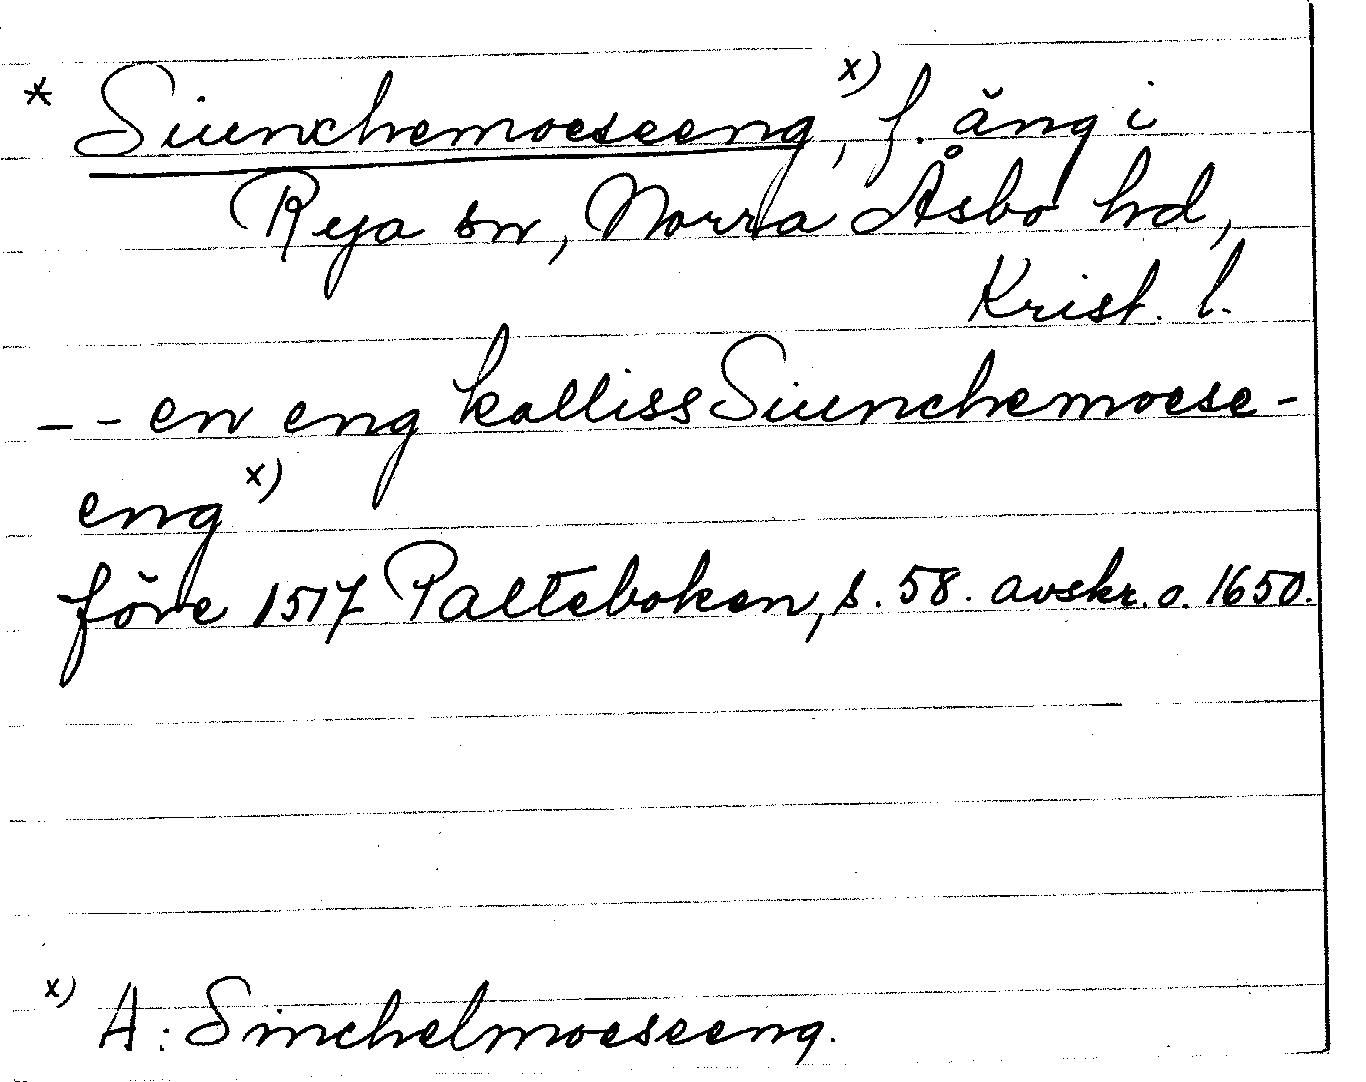 * Siunchemoeseeng x), f. äng i
Reya sn, Norra Åsbo hd,
Krist. l.
- - en eng kalliss Siunchemoese-
eng x)
före 1517 Palteboken, s. 58. avskr. o. 1650.
x) A: Sinchelmoeseeng.